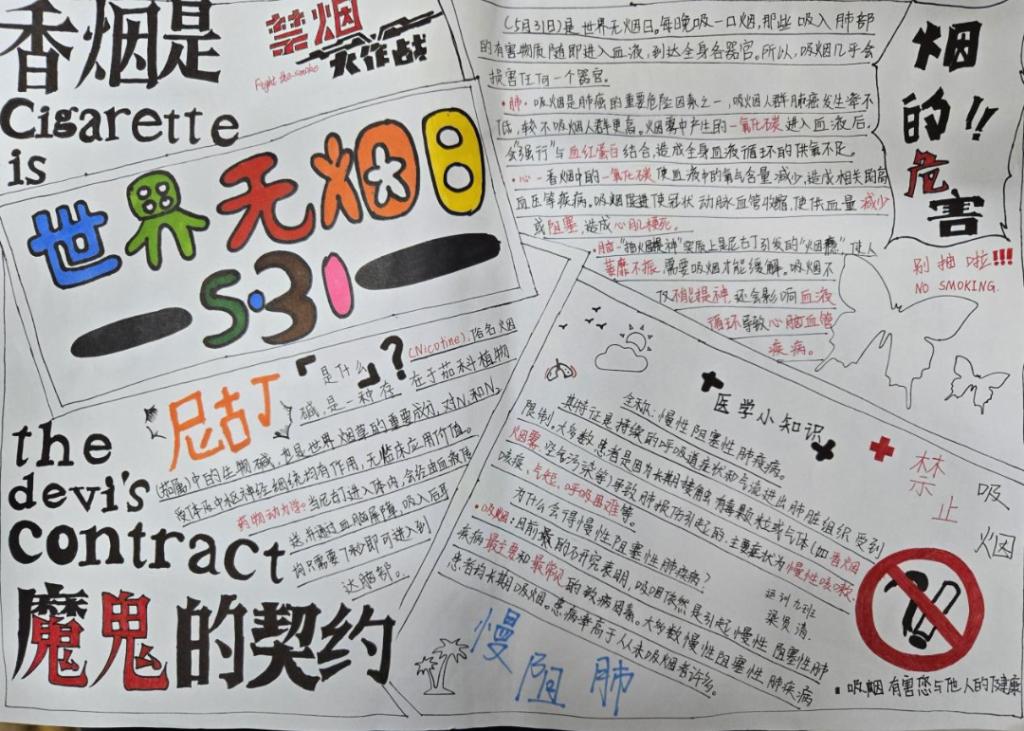 香烟是
Cigarette
is
禁烟
大作战
Fight the smoke
世界无烟日
5·31
(5月31日)是世界无烟日。每晚吸一口烟,那些吸入肺部
的有害物质随即进入血液,到达全身各器官。所以,吸烟几乎会
损害任何一个器官。
·肺-吸烟是肺癌的重要危险因素之一,吸烟人群肺癌发生率不
低,较不吸烟人群更高。烟雾中产生的一氧化碳进入血液后,
会"强行"与血红蛋白结合,造成全身血液循环的供氧不足。
·心-香烟中的一氧化碳使血液中的氧气含量减少,造成相关的高
血压等疾病。吸烟促进使冠状动脉血管收缩,使供血量减少
或阻塞,造成心肌梗死。
·脑-"抽烟提神"实质上是尼古丁引发的"烟瘾",使人
萎靡不振,需要吸烟才能缓解。吸烟不
仅不能提神,还会影响血液
循环导致心脑血管
疾病。
烟
的!!
危
害
别抽啦!!!
NO SMOKING.
尼古丁
「是什么」?
(Nicotine),俗名烟
碱,是一种存在于茄科植物
(茄属)中的生物碱,也是世界烟草的重要成分,对N₁和N₂
受体及中枢神经细统均有作用,无临床应用价值。
药物动力学:当尼古丁进入体内,会经由血液
送并通过血脑屏障,吸入后平
均只需要7秒即可进入到
达脑部。
the
devi's
contract
魔鬼的契约
医学小知识
全称:慢性阻塞性肺疾病。
其特征是持续的呼吸道症状和气流进出肺脏组织受到
限制。大多数患者是因为长期接触有毒颗粒或气体(如香烟烟
烟雾、空气污染等)导致肺损伤引起的,主要症状为慢性咳嗽、
咳痰、气短、呼吸困难等。
为什么会得慢性阻塞性肺疾病?
·吸烟:目前最的研究表明,吸烟依然是引起慢性阻塞性肺
疾病最主要和最常见的致病因素。大多数慢性阻塞性肺疾病
患者均长期吸烟。患病率高于从未吸烟者许多。
慢阻肺
禁止
吸烟
九班
▪吸烟有害您与他人的健康